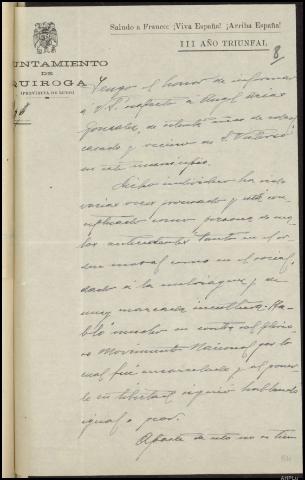 Saludo a Franco: ¡Viva España! ¡Arriba España!
III AÑO TRIUNFAL
8
UNTAMIENTO
DE
QUIROGA
(PROVINCIA DE LUGO)
Tengo el honor de informar
a V. S. respecto a Angel Arias
Gonzalez, de setenta años de edad,
casado y vecino de S. Vitorio
en este municipio.
Dicho individuo ha sido
varias veces procesado y está con
ceptuado como persona de ma
los antecedentes tanto en el or
den moral como en el social,
dado a la embriaguez y de
muy marcada incultura. Ha
bló mucho en contra del glorio
so Movimiento Nacional por lo
cual fué encarcelado y al poner
le en libertad siguió hablando
igual o peor.
Aparte de esto no se tien
AHPLu